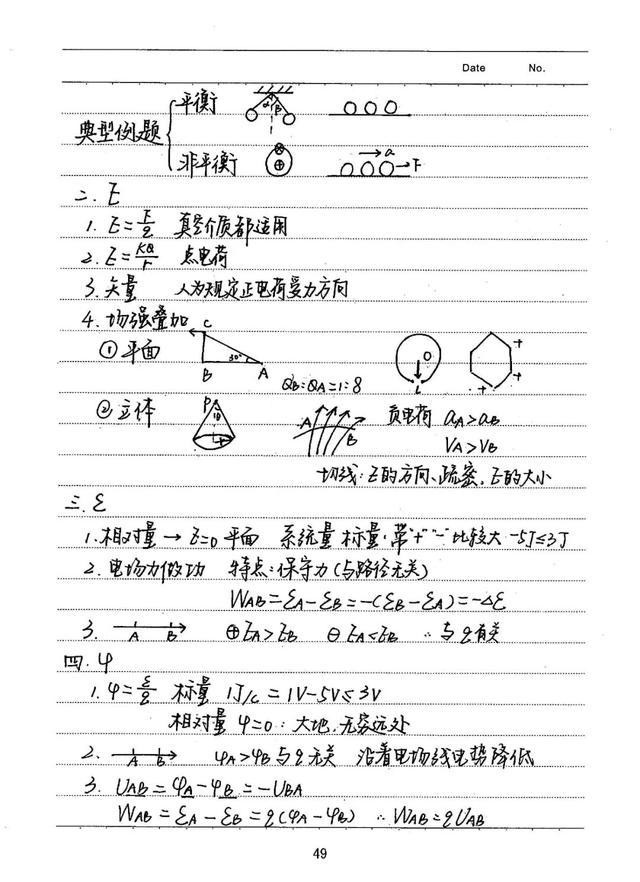 Date No.
平衡 α β
典型例题
非平衡 ⊕ ⊗ a F
二. E
1. E=F/q 真空介质都适用
2. E=KQ/r 点电荷
3. 矢量 人为规定正电荷受力方向
4. 场强叠加
① 平面 C B 30° A QB:QA=1:8 O + + +
② 立体 P A B 负电荷 aA>aB
VA>VB
切线:E的方向、疏密,E的大小
三. ε
1. 相对量→ε=0平面 系统量 标量·带"+""-"比较大 -5J≤3J
2. 电场力做功 特点:保守力(与路径无关)
WAB=εA-εB=-(εB-εA)=-Δε
3. A B ⊕EA>EB ⊖EA<EB ∴与q有关
四. φ
1. φ=ε/q 标量 1J/c=1V -5V≤3V
相对量 φ=0:大地,无穷远处
2. A B φA>φB与q无关 沿着电场线电势降低
3. UAB=φA-φB=-UBA
WAB=εA-εB=q(φA-φB) ∴WAB=qUAB
49